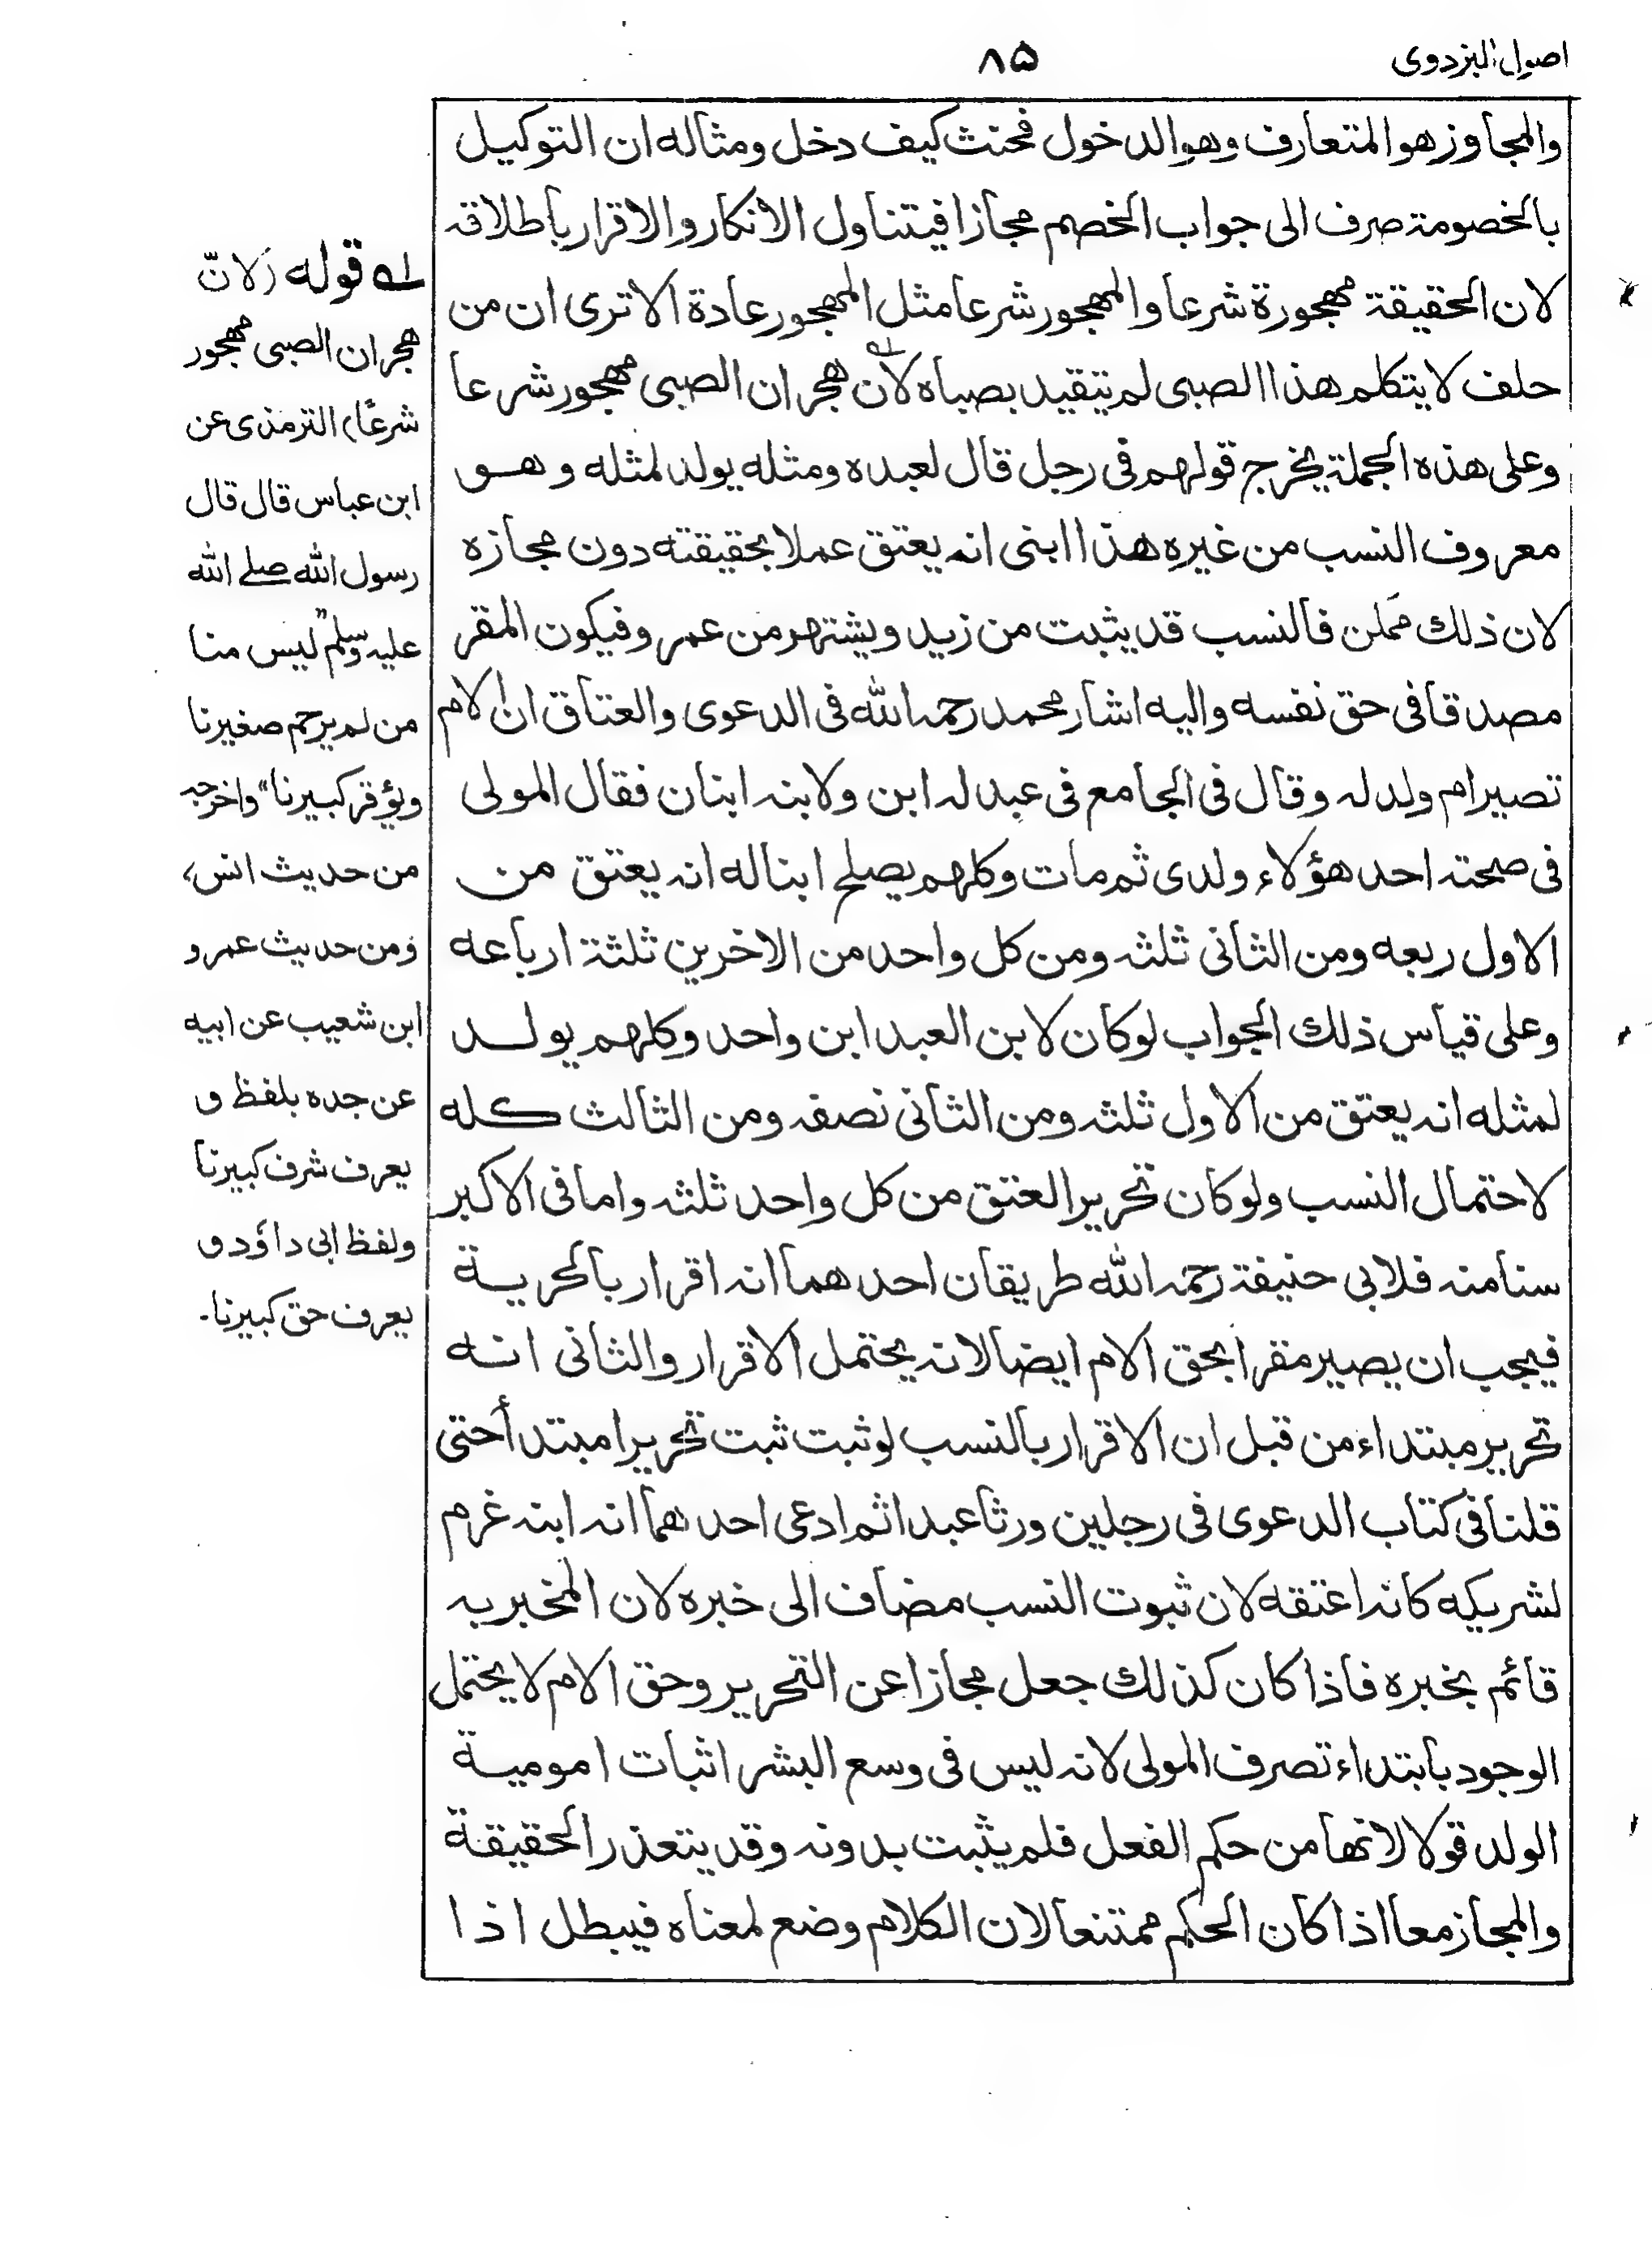 اصول البزدوى
٨٥
والمجاوز هو المتعارف وهو الدخول فحنث كيف دخل ومثاله ان التوكيل
بالخصومة صرف الى جواب الخصم مجازا فيتناول الانكار والاقرار باطلاقه
لان الحقيقة مهجورة شرعا والمهجور شرعا مثل المهجور عادة الا ترى ان من
حلف لا يتكلم هذا الصبى لم يتقيد بصباه لان هجران الصبى مهجور شرعا
وعلى هذه الجملة يخرج قولهم فى رجل قال لعبده ومثله يولد لمثله وهو
معروف النسب من غيره هذا ابنى انه يعتق عملا بحقيقته دون مجازه
لان ذلك ممكن فالنسب قد يثبت من زيد ويشتهر من عمرو فيكون المقر
مصدقا فى حق نفسه واليه اشار محمد رحمه الله فى الدعوى والعتاق ان الام
تصير ام ولد له وقال فى الجامع فى عبد له ابن ولابنه ابنان فقال المولى
فى صحته احد هؤلاء ولدى ثم مات وكلهم يصلح ابنا له انه يعتق من
الاول ربعه ومن الثانى ثلثه ومن كل واحد من الاخرين ثلثة ارباعه
وعلى قياس ذلك الجواب لو كان لابن العبد ابن واحد وكلهم يولد
لمثله انه يعتق من الاول ثلثه ومن الثانى نصفه ومن الثالث كله
لاحتمال النسب ولو كان تحرير العتق من كل واحد ثلثه واما فى الاكبر
سنا منه فلابى حنيفة رحمه الله طريقان احدهما انه اقرار بالحرية
فيجب ان يصير مقرا بحق الام ايضا لانه يحتمل الاقرار والثانى انه
تحرير مبتداء من قبل ان الاقرار بالنسب لو ثبت ثبت تحريرا مبتدأ حتى
قلنا فى كتاب الدعوى فى رجلين ورثا عبدا ثم ادعى احدهما انه ابنه غرم
لشريكه كانه اعتقه لان ثبوت النسب مضاف الى خبره لان المخبر به
قائم بخبره فاذا كان كذلك جعل مجازا عن التحرير وحق الام لا يحتمل
الوجود بابتداء تصرف المولى لانه ليس فى وسع البشر اثبات امومية
الولد قولا لانها من حكم الفعل فلم يثبت بدونه وقد يتعذر الحقيقة
والمجاز معا اذا كان الحكم ممتنعا لان الكلام وضع لمعناه فيبطل اذا
له قوله (لانّ
هجران الصبى مهجور
شرعًا) الترمذى عن
ابن عباس قال قال
رسول الله صلے الله
عليه وسلم "ليس منا
من لم يرحم صغيرنا
ويؤقر كبيرنا" واخرجه
من حديث انس،
ومن حديث عمرو
ابن شعيب عن ابيه
عن جده بلفظ و
يعرف شرف كبيرنا
ولفظ ابى داؤد و
يعرف حق كبيرنا۔